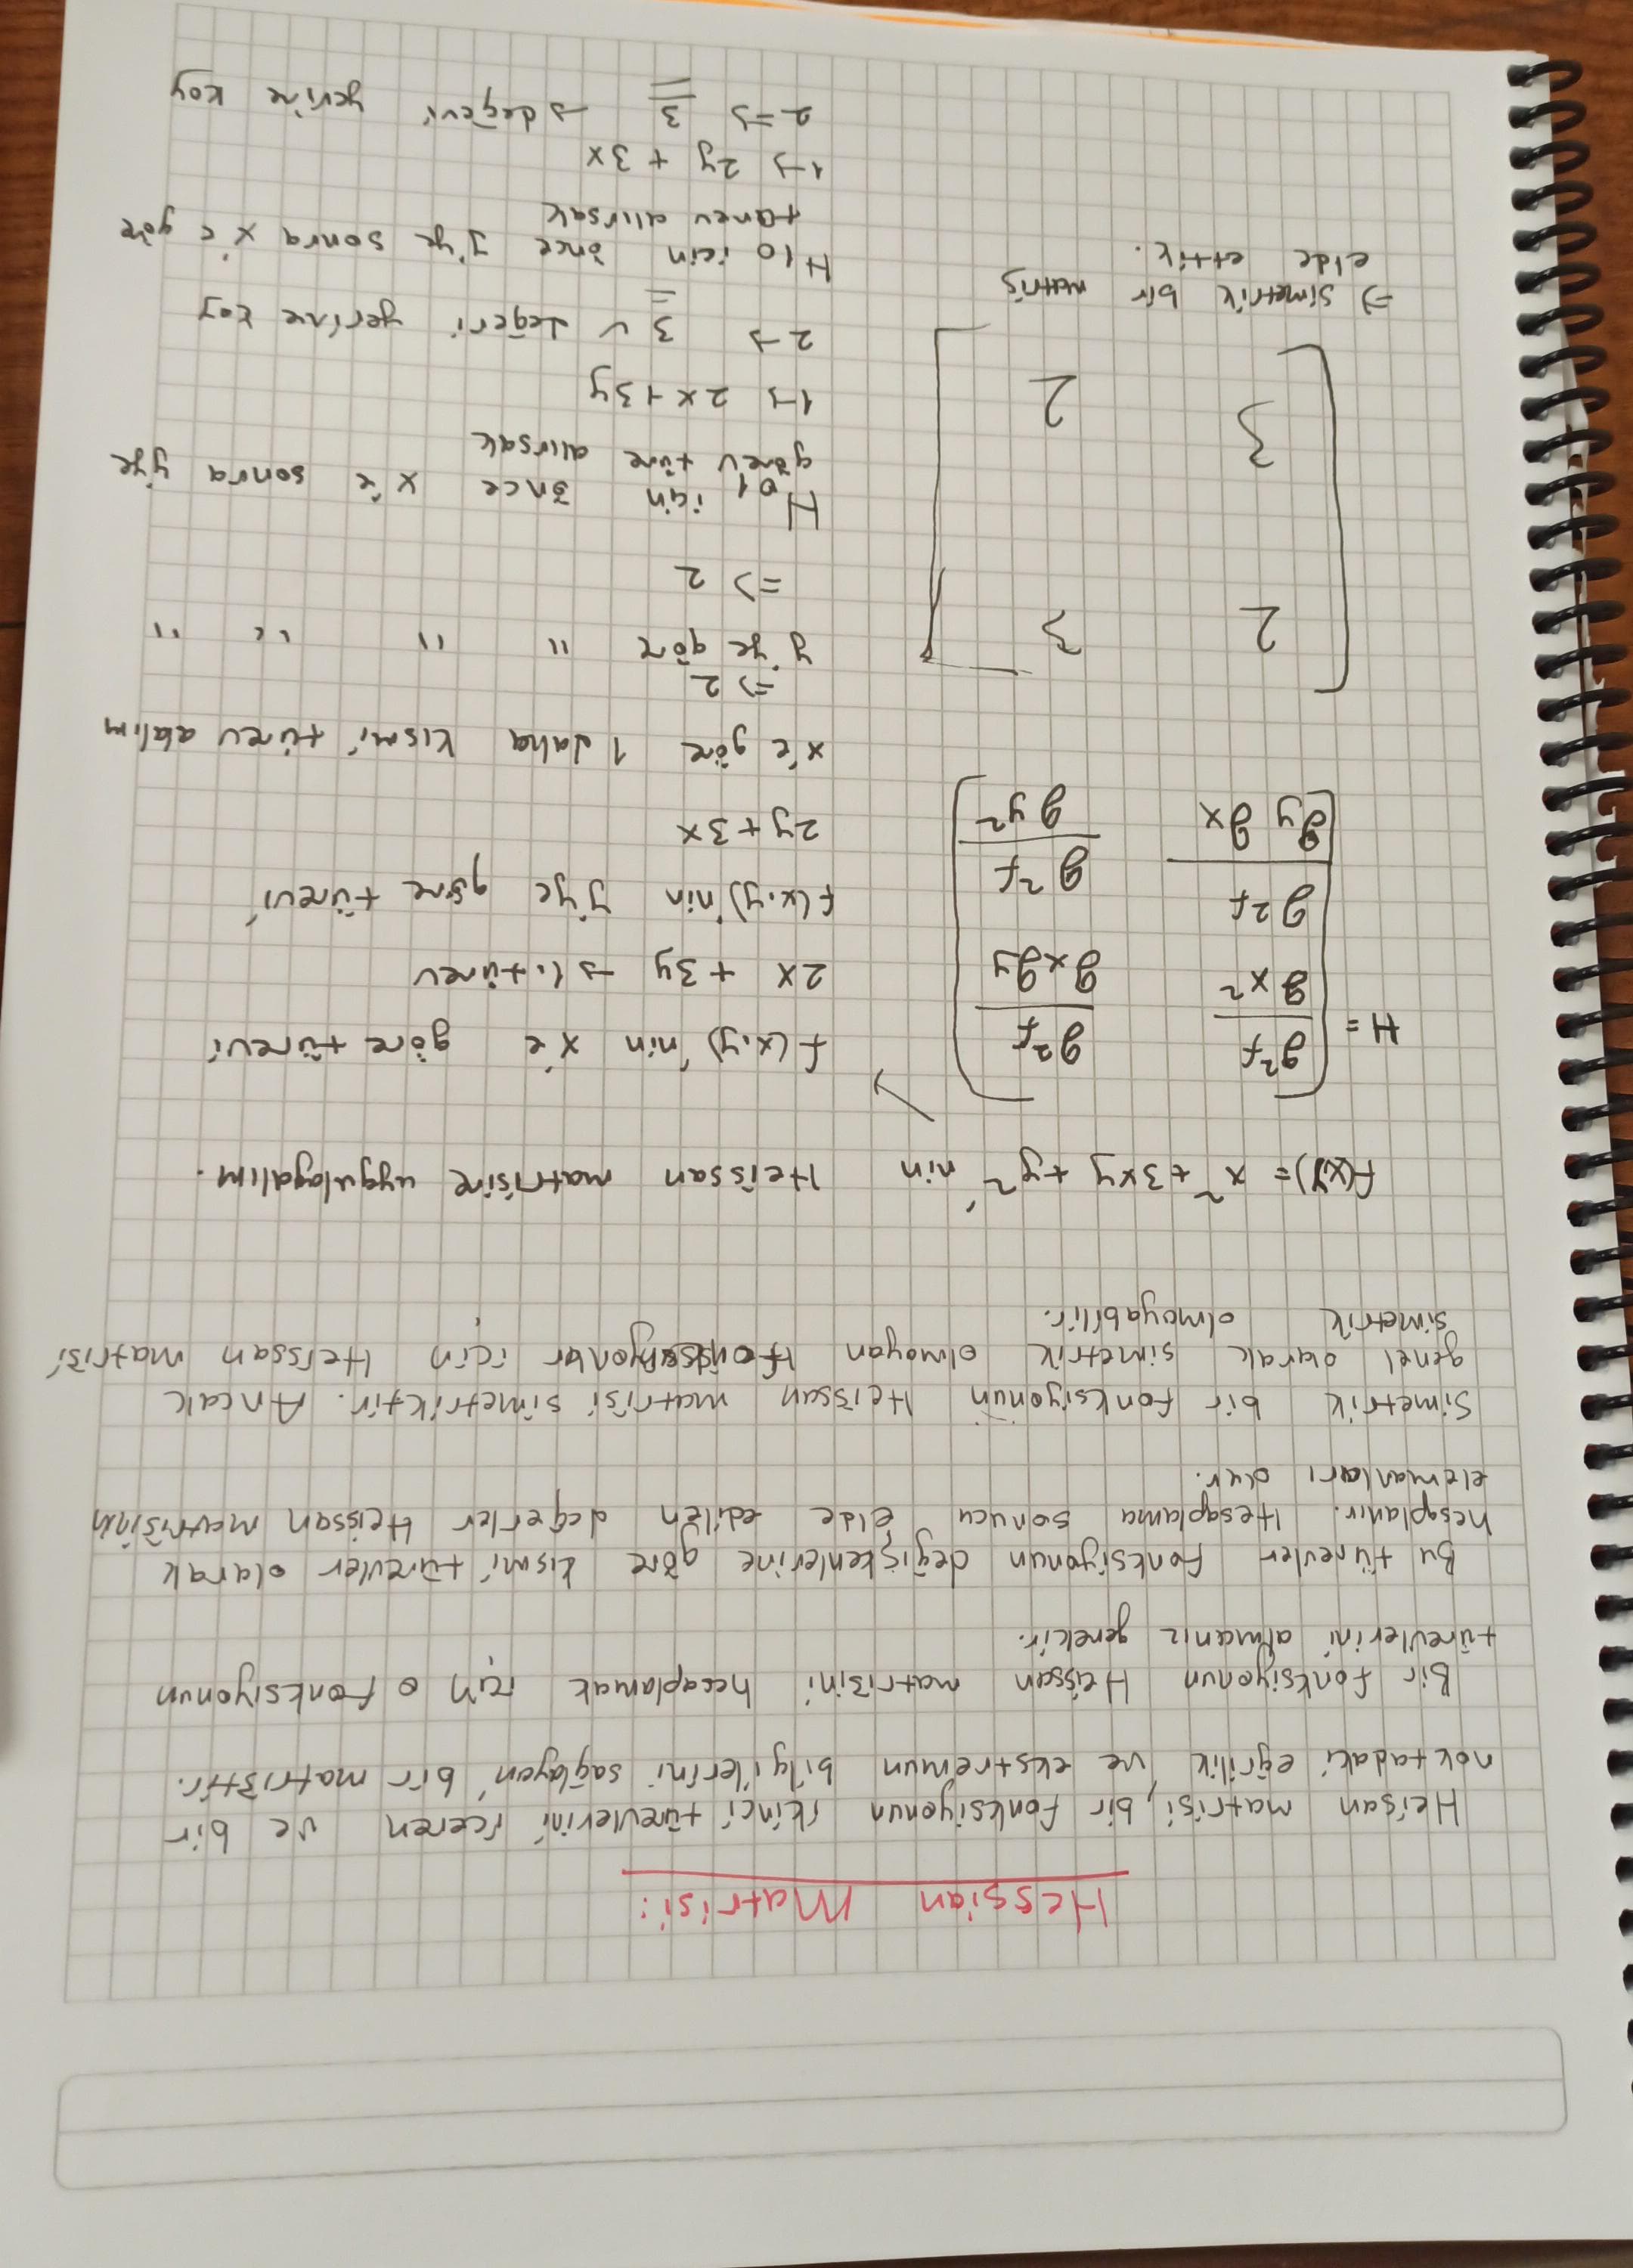 Hessian Matrisi:
Heisan matrisi, bir fonksiyonun ikinci türevlerini içeren ve bir
noktadaki eğrilik ve ekstremun bilgilerini sağlayan bir matristir.
Bir fonksiyonun Heissan matrisini hesaplamak için o fonksiyonun
türevlerini almanız gerekir.
Bu türevler fonksiyonun değişkenlerine göre kısmi türevler olarak
hesaplanır. Hesaplama sonucu elde edilen değerler Heissan matrisinin
elemanları olur.
Simetrik bir fonksiyonun Heissan matrisi simetriktir. Ancak
genel olarak simetrik olmayan fonksiyonlar için Heissan matrisi
simetrik olmayabilir.
f(x,y) = x² + 3xy + y² 'nin Heissan matrisine uygulayalım.
H = [ ∂²f/∂x² ∂²f/∂x∂y
∂²f/∂y∂x ∂²f/∂y² ]
[ 2 3
3 2 ]
=> simetrik bir matris
elde ettik.
f(x,y)'nin x'e göre türevi
2x + 3y → 1. türev
f(x,y)'nin y'ye göre türevi
2y + 3x
x'e göre 1 daha kısmi türev alalım
=> 2
y'ye göre " " " "
=> 2
H01 için önce x'e sonra y'ye
görev türe alırsak
1→ 2x+3y
2→ 3 ✓ değeri yerine koy
H10 için önce y'ye sonra x'e göre
tanev alırsak
1→ 2y + 3x
2=> 3 → değeri yerine koy